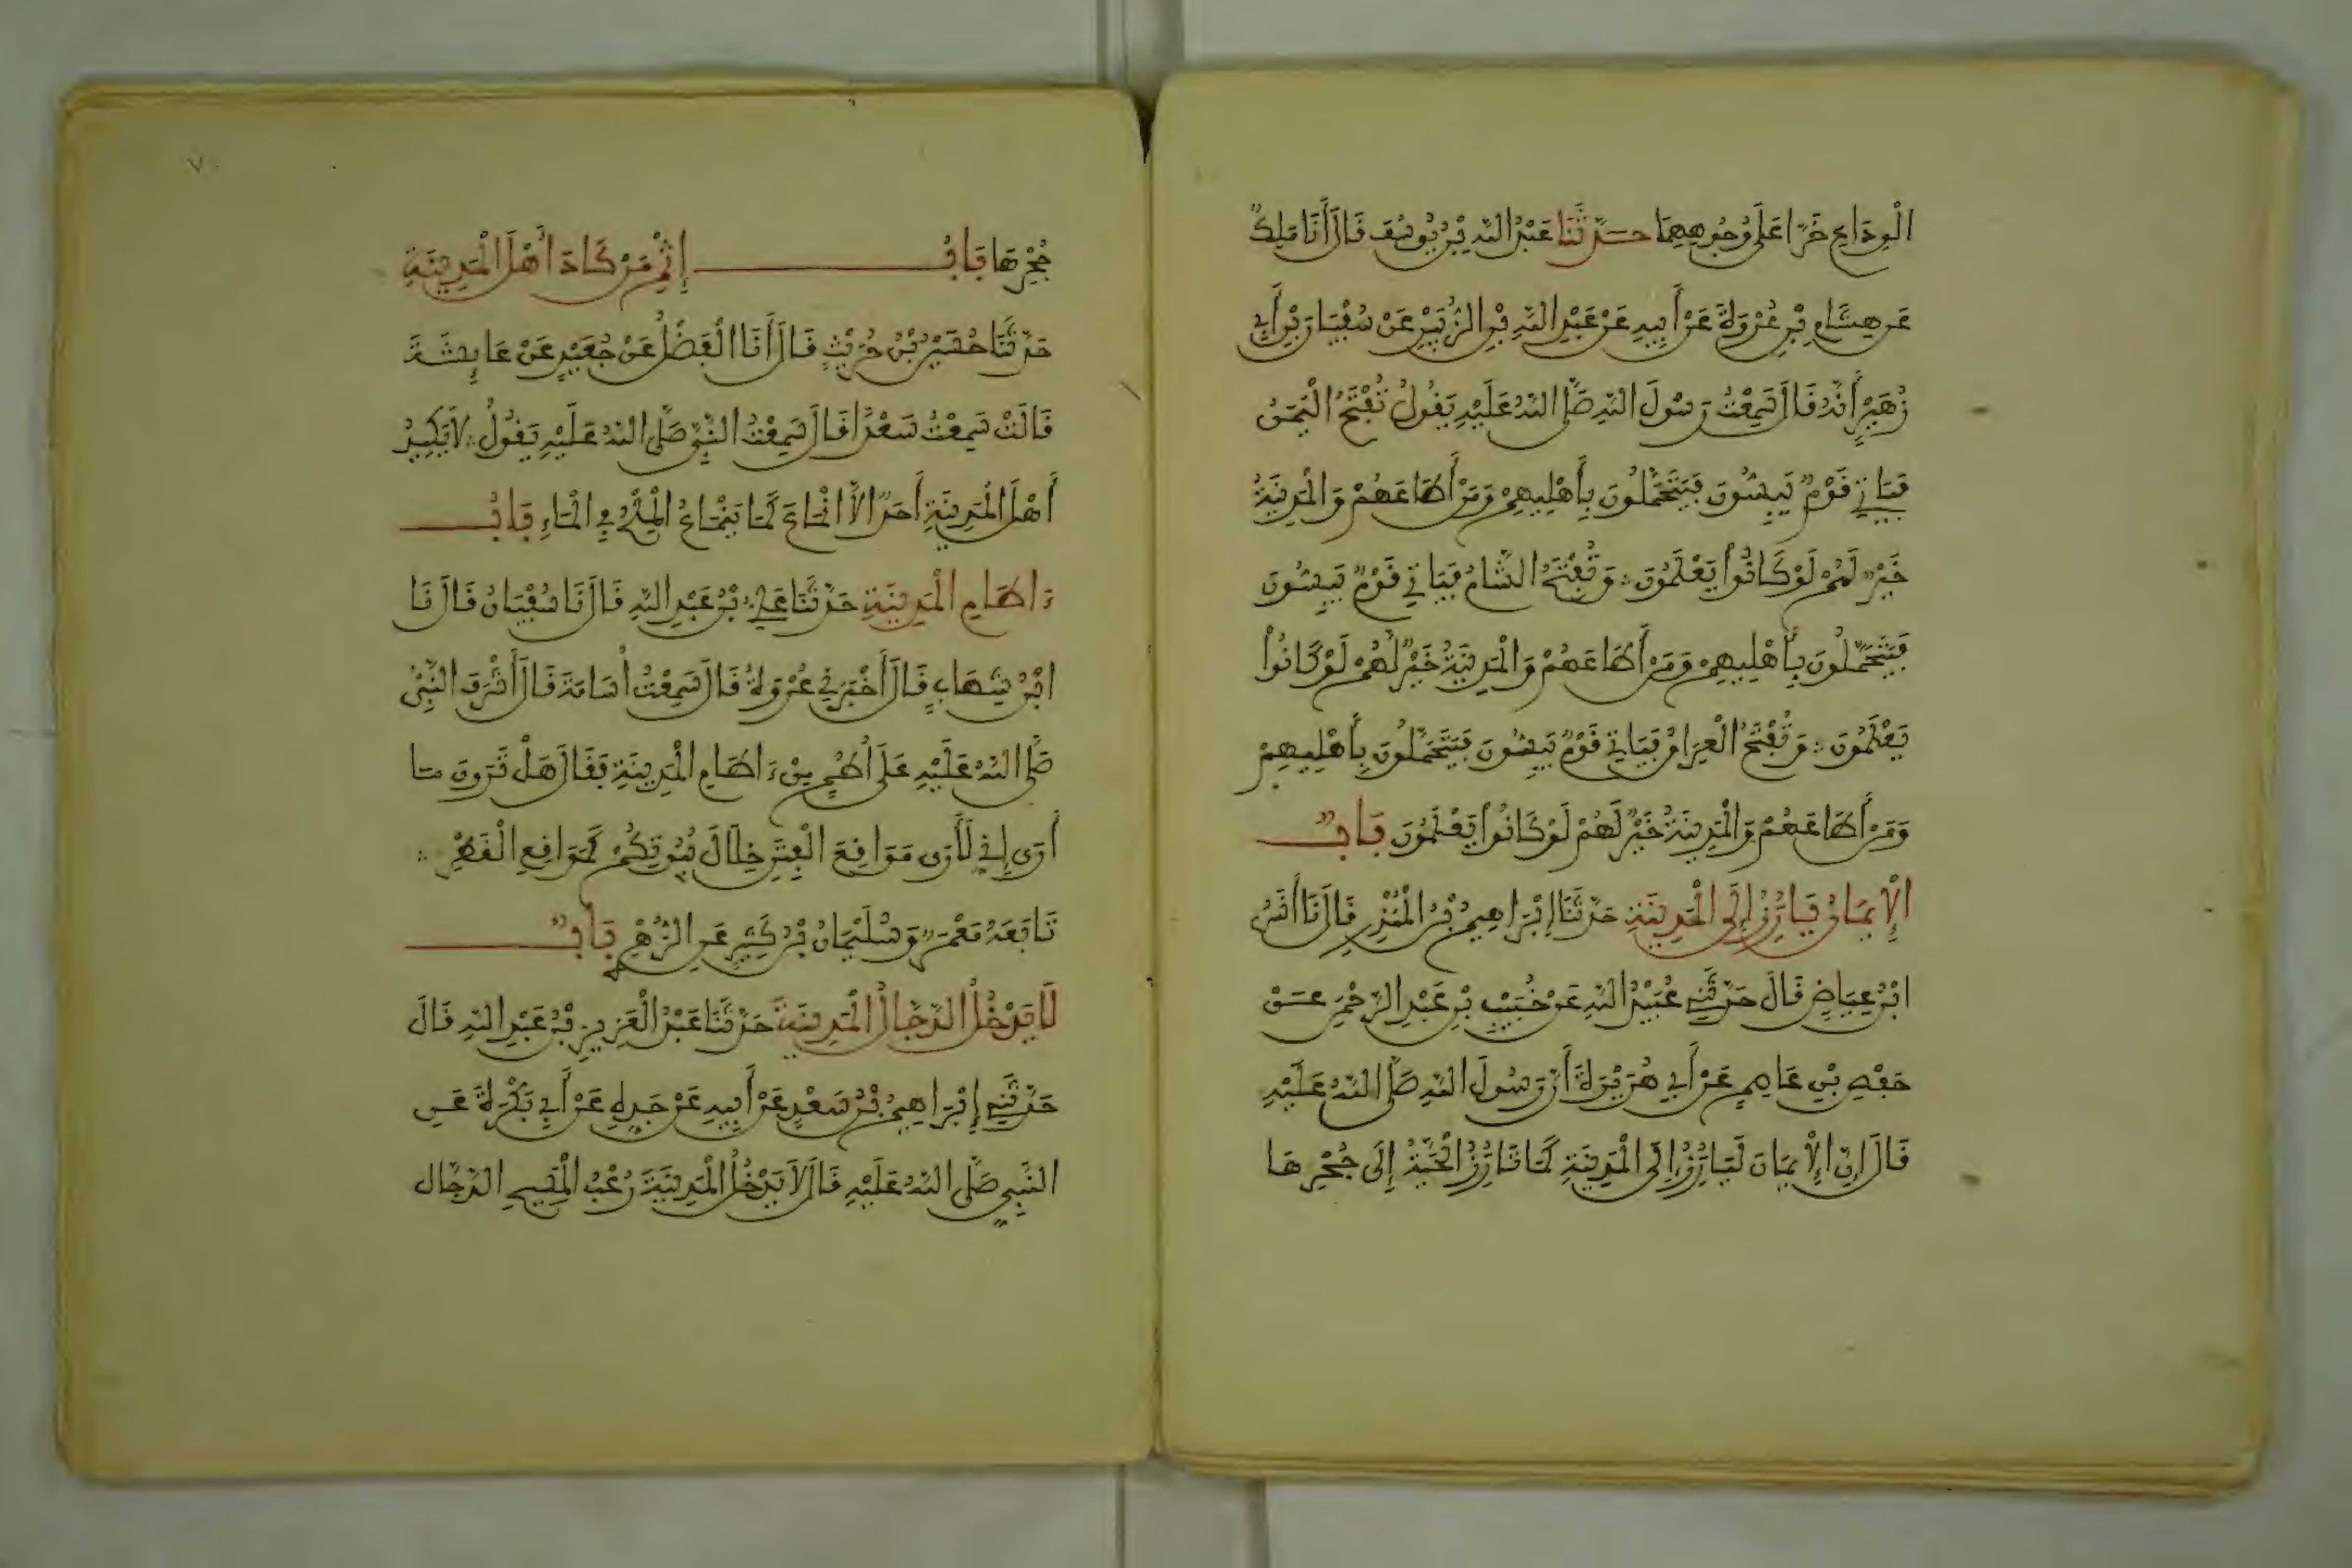 الْوَدَاعِ خَرَّا عَلَى وُجُوهِهِمَا حَدَّثَنَا عَبْدُ اللَّهِ بْنُ يُوسُفَ قَالَ أَنَا مَلِكٌ
عَن هِشَامِ بْنِ عُرْوَةَ عَنْ أَبِيهِ عَنْ عَبْدِ اللَّهِ بْنِ الزُّبَيْرِ عَنْ سُفْيَانَ بْنِ أَبِي
زُهَيْرٍ أَنَّهُ قَالَ سَمِعْتُ رَسُولَ اللَّهِ صَلَّى اللَّهُ عَلَيْهِ يَقُولُ تُفْتَحُ الْيَمَنُ
فَيَاتِي قَوْمٌ يَبِسُّونَ فَيَتَحَمَّلُونَ بِأَهْلِيهِمْ وَمَنْ أَطَاعَهُمْ وَالْمَدِينَةُ
خَيْرٌ لَهُمْ لَوْ كَانُوا يَعْلَمُونَ وَتُفْتَحُ الشَّامُ فَيَاتِي قَوْمٌ يَبِسُّونَ
فَيَتَحَمَّلُونَ بِأَهْلِيهِمْ وَمَنْ أَطَاعَهُمْ وَالْمَدِينَةُ خَيْرٌ لَهُمْ لَوْ كَانُوا
يَعْلَمُونَ وَتُفْتَحُ الْعِرَاقُ فَيَاتِي قَوْمٌ يَبِسُّونَ فَيَتَحَمَّلُونَ بِأَهْلِيهِمْ
وَمَنْ أَطَاعَهُمْ وَالْمَدِينَةُ خَيْرٌ لَهُمْ لَوْ كَانُوا يَعْلَمُونَ بَابٌ
الْإِيمَانُ يَأْرِزُ إِلَى الْمَدِينَةِ حَدَّثَنَا إِبْرَاهِيمُ بْنُ الْمُنْذِرِ قَالَ نَا أَنَسُ
ابْنُ عِيَاضٍ قَالَ حَدَّثَنِي عُبَيْدُ اللَّهِ عَنْ خُبَيْبِ بْنِ عَبْدِ الرَّحْمَنِ عَنْ
حَفْصِ بْنِ عَاصِمٍ عَنْ أَبِي هُرَيْرَةَ أَنَّ رَسُولَ اللَّهِ صَلَّى اللَّهُ عَلَيْهِ
قَالَ إِنَّ الْإِيمَانَ لَيَأْرِزُ إِلَى الْمَدِينَةِ كَمَا تَأْرِزُ الْحَيَّةُ إِلَى جُحْرِهَا
جُحْرِهَا بَابُ إِثْمِ مَنْ كَادَ أَهْلَ الْمَدِينَةِ
حَدَّثَنَا حُسَيْنُ بْنُ حُرَيْثٍ قَالَ أَنَا الْفَضْلُ عَنْ جُعَيْدٍ عَنْ عَايِشَةَ
قَالَتْ سَمِعْتُ سَعْدًا قَالَ سَمِعْتُ النَّبِيَّ صَلَّى اللَّهُ عَلَيْهِ يَقُولُ لَا يَكِيدُ
أَهْلَ الْمَدِينَةِ أَحَدٌ إِلَّا انْمَاعَ كَمَا يَنْمَاعُ الْمِلْحُ فِي الْمَاءِ بَابُ
ءَاطَامِ الْمَدِينَةِ حَدَّثَنَا عَلِيُّ بْنُ عَبْدِ اللَّهِ قَالَ نَا سُفْيَانُ قَالَ نَا
ابْنُ شِهَابٍ قَالَ أَخْبَرَنِي عُرْوَةُ قَالَ سَمِعْتُ أُسَامَةَ قَالَ أَشْرَفَ النَّبِيُّ
صَلَّى اللَّهُ عَلَيْهِ عَلَى أُطُمٍ مِنْ ءَاطَامِ الْمَدِينَةِ فَقَالَ هَلْ تَرَوْنَ مَا
أَرَى إِنِّي لَأَرَى مَوَاقِعَ الْفِتَنِ خِلَالَ بُيُوتِكُمْ كَمَوَاقِعِ الْقَطْرِ
تَابَعَهُ مَعْمَرٌ وَسُلَيْمَانُ بْنُ كَثِيرٍ عَنِ الزُّهْرِي بَابٌ
لَا يَدْخُلُ الدَّجَّالُ الْمَدِينَةَ حَدَّثَنَا عَبْدُ الْعَزِيزِ بْنُ عَبْدِ اللَّهِ قَالَ
حَدَّثَنِي إِبْرَاهِيمُ بْنُ سَعْدٍ عَنْ أَبِيهِ عَنْ جَدِّهِ عَنْ أَبِي بَكْرَةَ عَنِ
النَّبِيِّ صَلَّى اللَّهُ عَلَيْهِ قَالَ لَا يَدْخُلُ الْمَدِينَةَ رُعْبُ الْمَسِيحِ الدَّجَّالِ